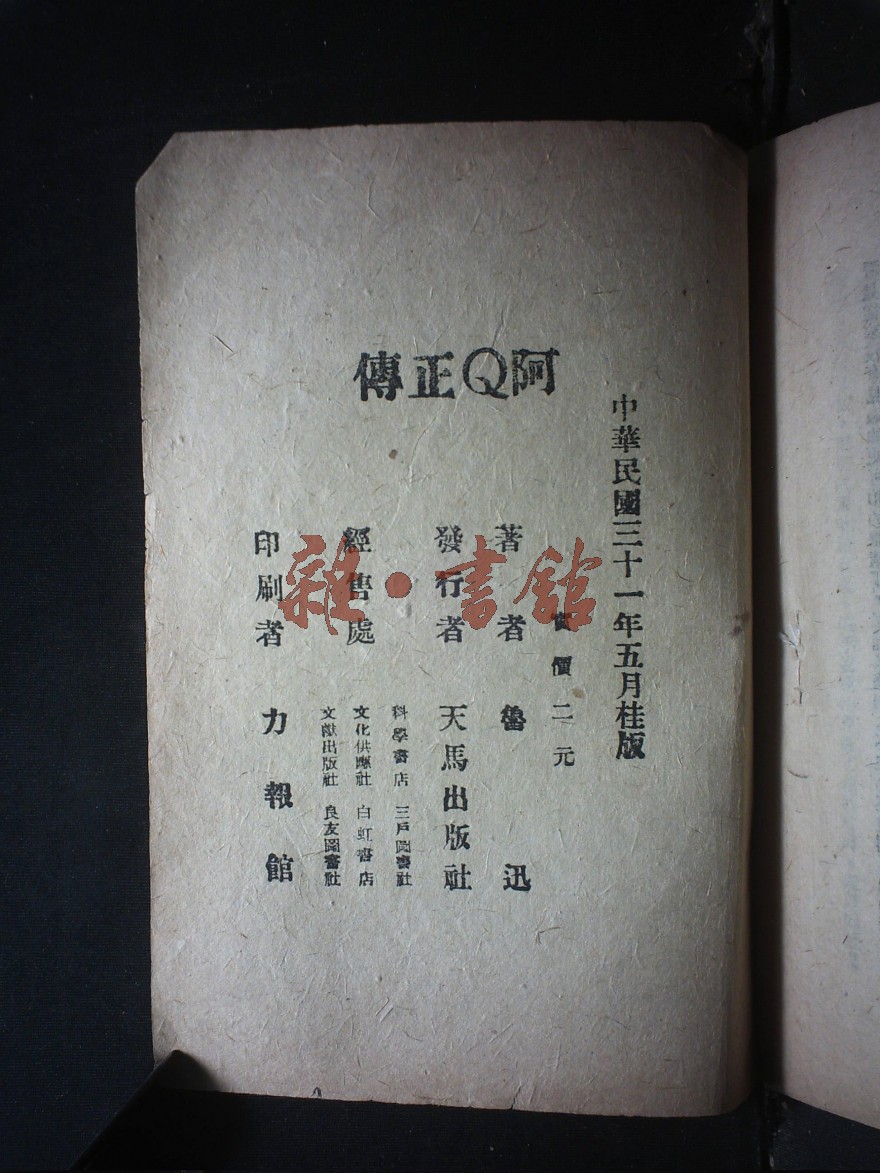 阿Q正傳
中華民國三十一年五月桂版
價二元
著者 魯迅
發行者 天馬出版社
經售處
科學書店 三戶圖書社
文化供應社 白虹書店
文獻出版社 良友圖書社
印刷者 力報館
雜·書館